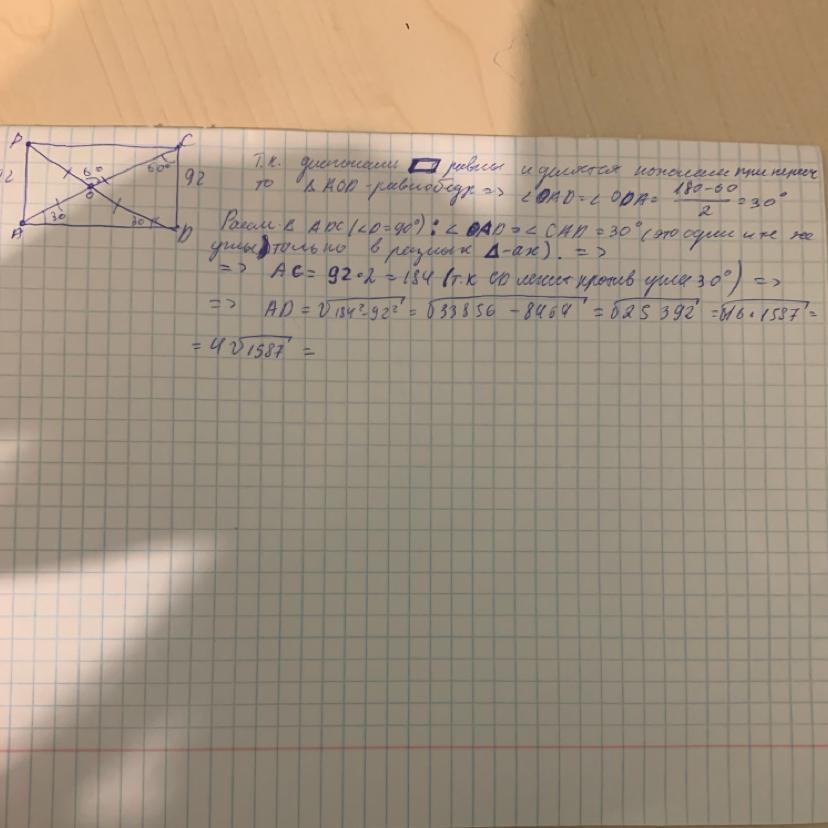 B C
92 60 60° 92
O
A 30 30 D
Т.к. диагонали ▭ равны и делятся пополам при пересеч
то Δ AOD - равнобедр => ∠OAD = ∠ODA = (180-60)/2 = 30°
Рассм. Δ ADC (∠D=90°): ∠OAD = ∠CAD = 30° (это одни и те же
углы, только в разных Δ-ах). =>
=> AC = 92·2 = 184 (т.к CD лежит против угла 30°) =>
=> AD = √184²-92² = √33856 - 8464 = √25392 = √16·1587 =
= 4√1587 =